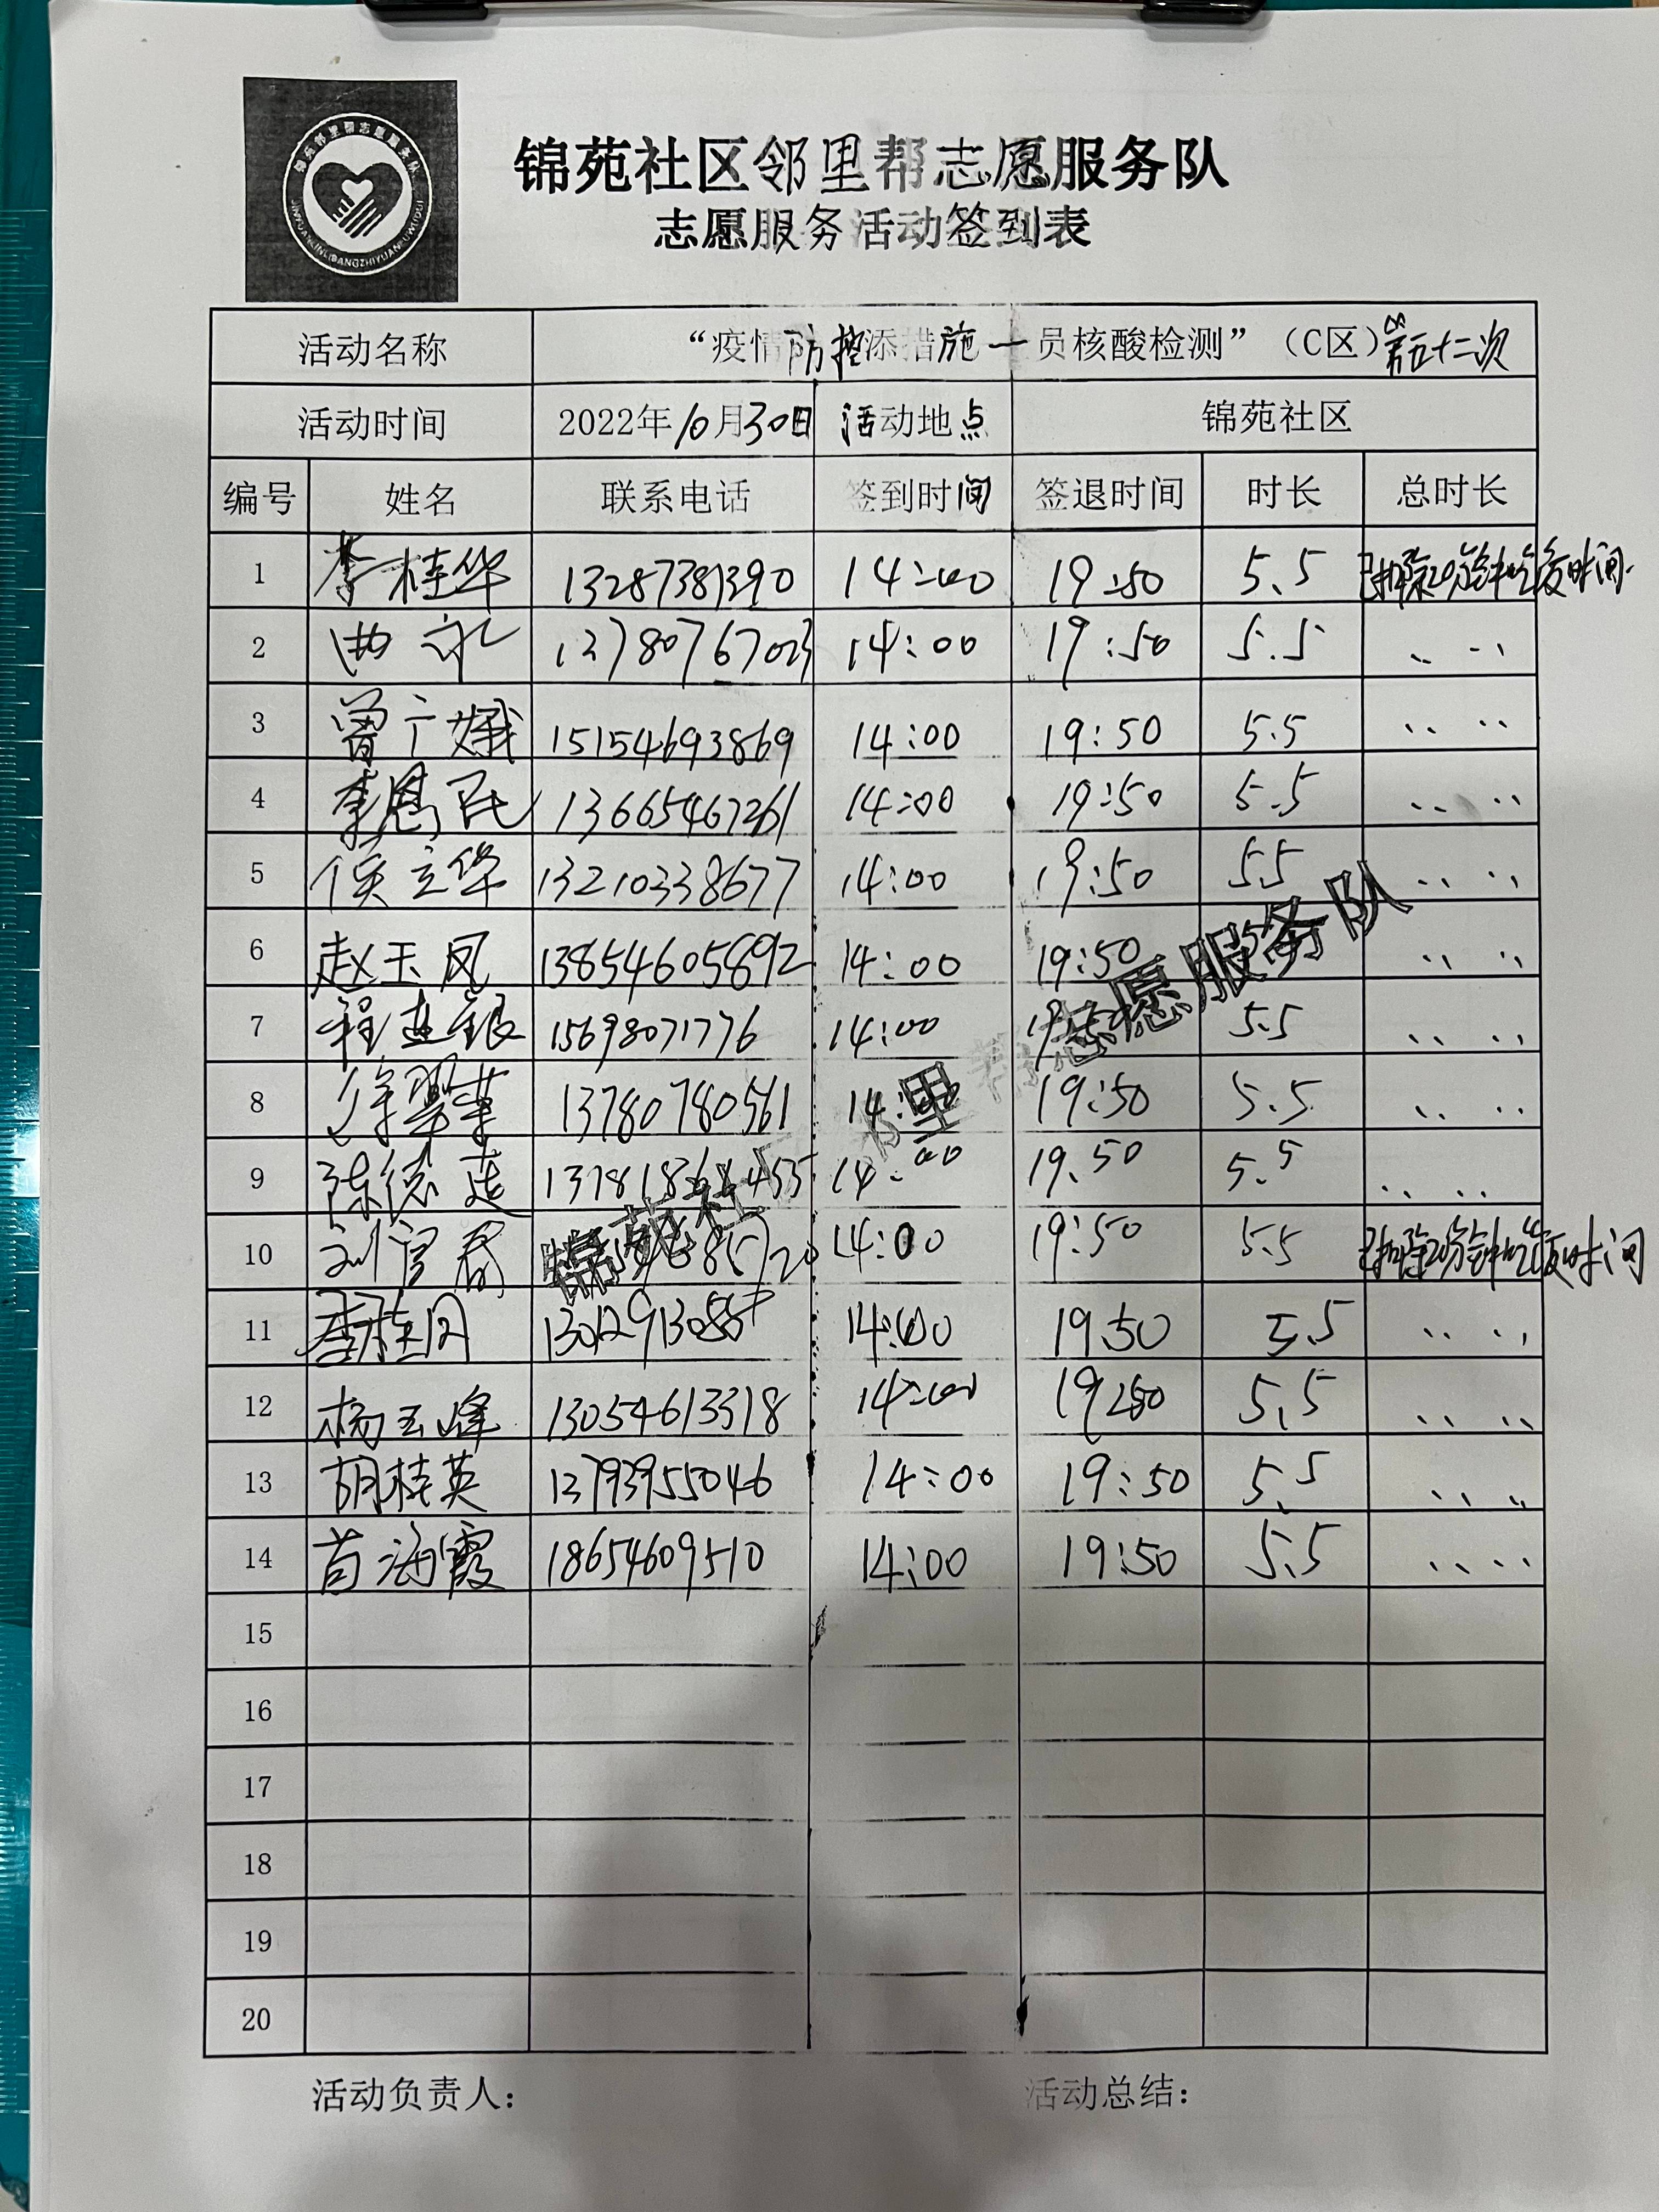 锦苑社区邻里帮志愿服务队
志愿服务活动签到表
活动名称 “疫情防控添措施一 员核酸检测”（C区）第五十二次
活动时间 2022年10月30日 活动地点 锦苑社区
编号 姓名 联系电话 签到时间 签退时间 时长 总时长
1 李桂华 13287381390 14:00 19:50 5.5 已扣除20分钟吃饭时间.
2 曲 13780767023 14:00 19:50 5.5 〃 〃
3 曾广娥 15154693869 14:00 19:50 5.5 〃 〃
4 李恩民 13665467261 14:00 19:50 5.5 〃 〃
5 侯立华 13210338677 14:00 19:50 5.5 〃 〃
6 赵玉凤 13854605892 14:00 19:50 〃 〃
7 程连银 15698071776 14:00 19:50 5.5 〃 〃
8 徐翠苹 13780780561 14:00 19:50 5.5 〃 〃
9 陈德莲 14:00 19.50 5.5 〃 〃
10 14:00 19:50 5.5 已扣除20分钟吃饭时间
11 李桂月 14:00 19:50 5.5 〃 〃
12 杨玉峰 13054613318 14:00 19:50 5.5 〃 〃
13 胡桂英 13793955046 14:00 19:50 5.5 〃 〃
14 苗海霞 18654609510 14:00 19:50 5.5 〃 〃
15
16
17
18
19
20
活动负责人： 活动总结：
锦苑社 里帮志愿服务队